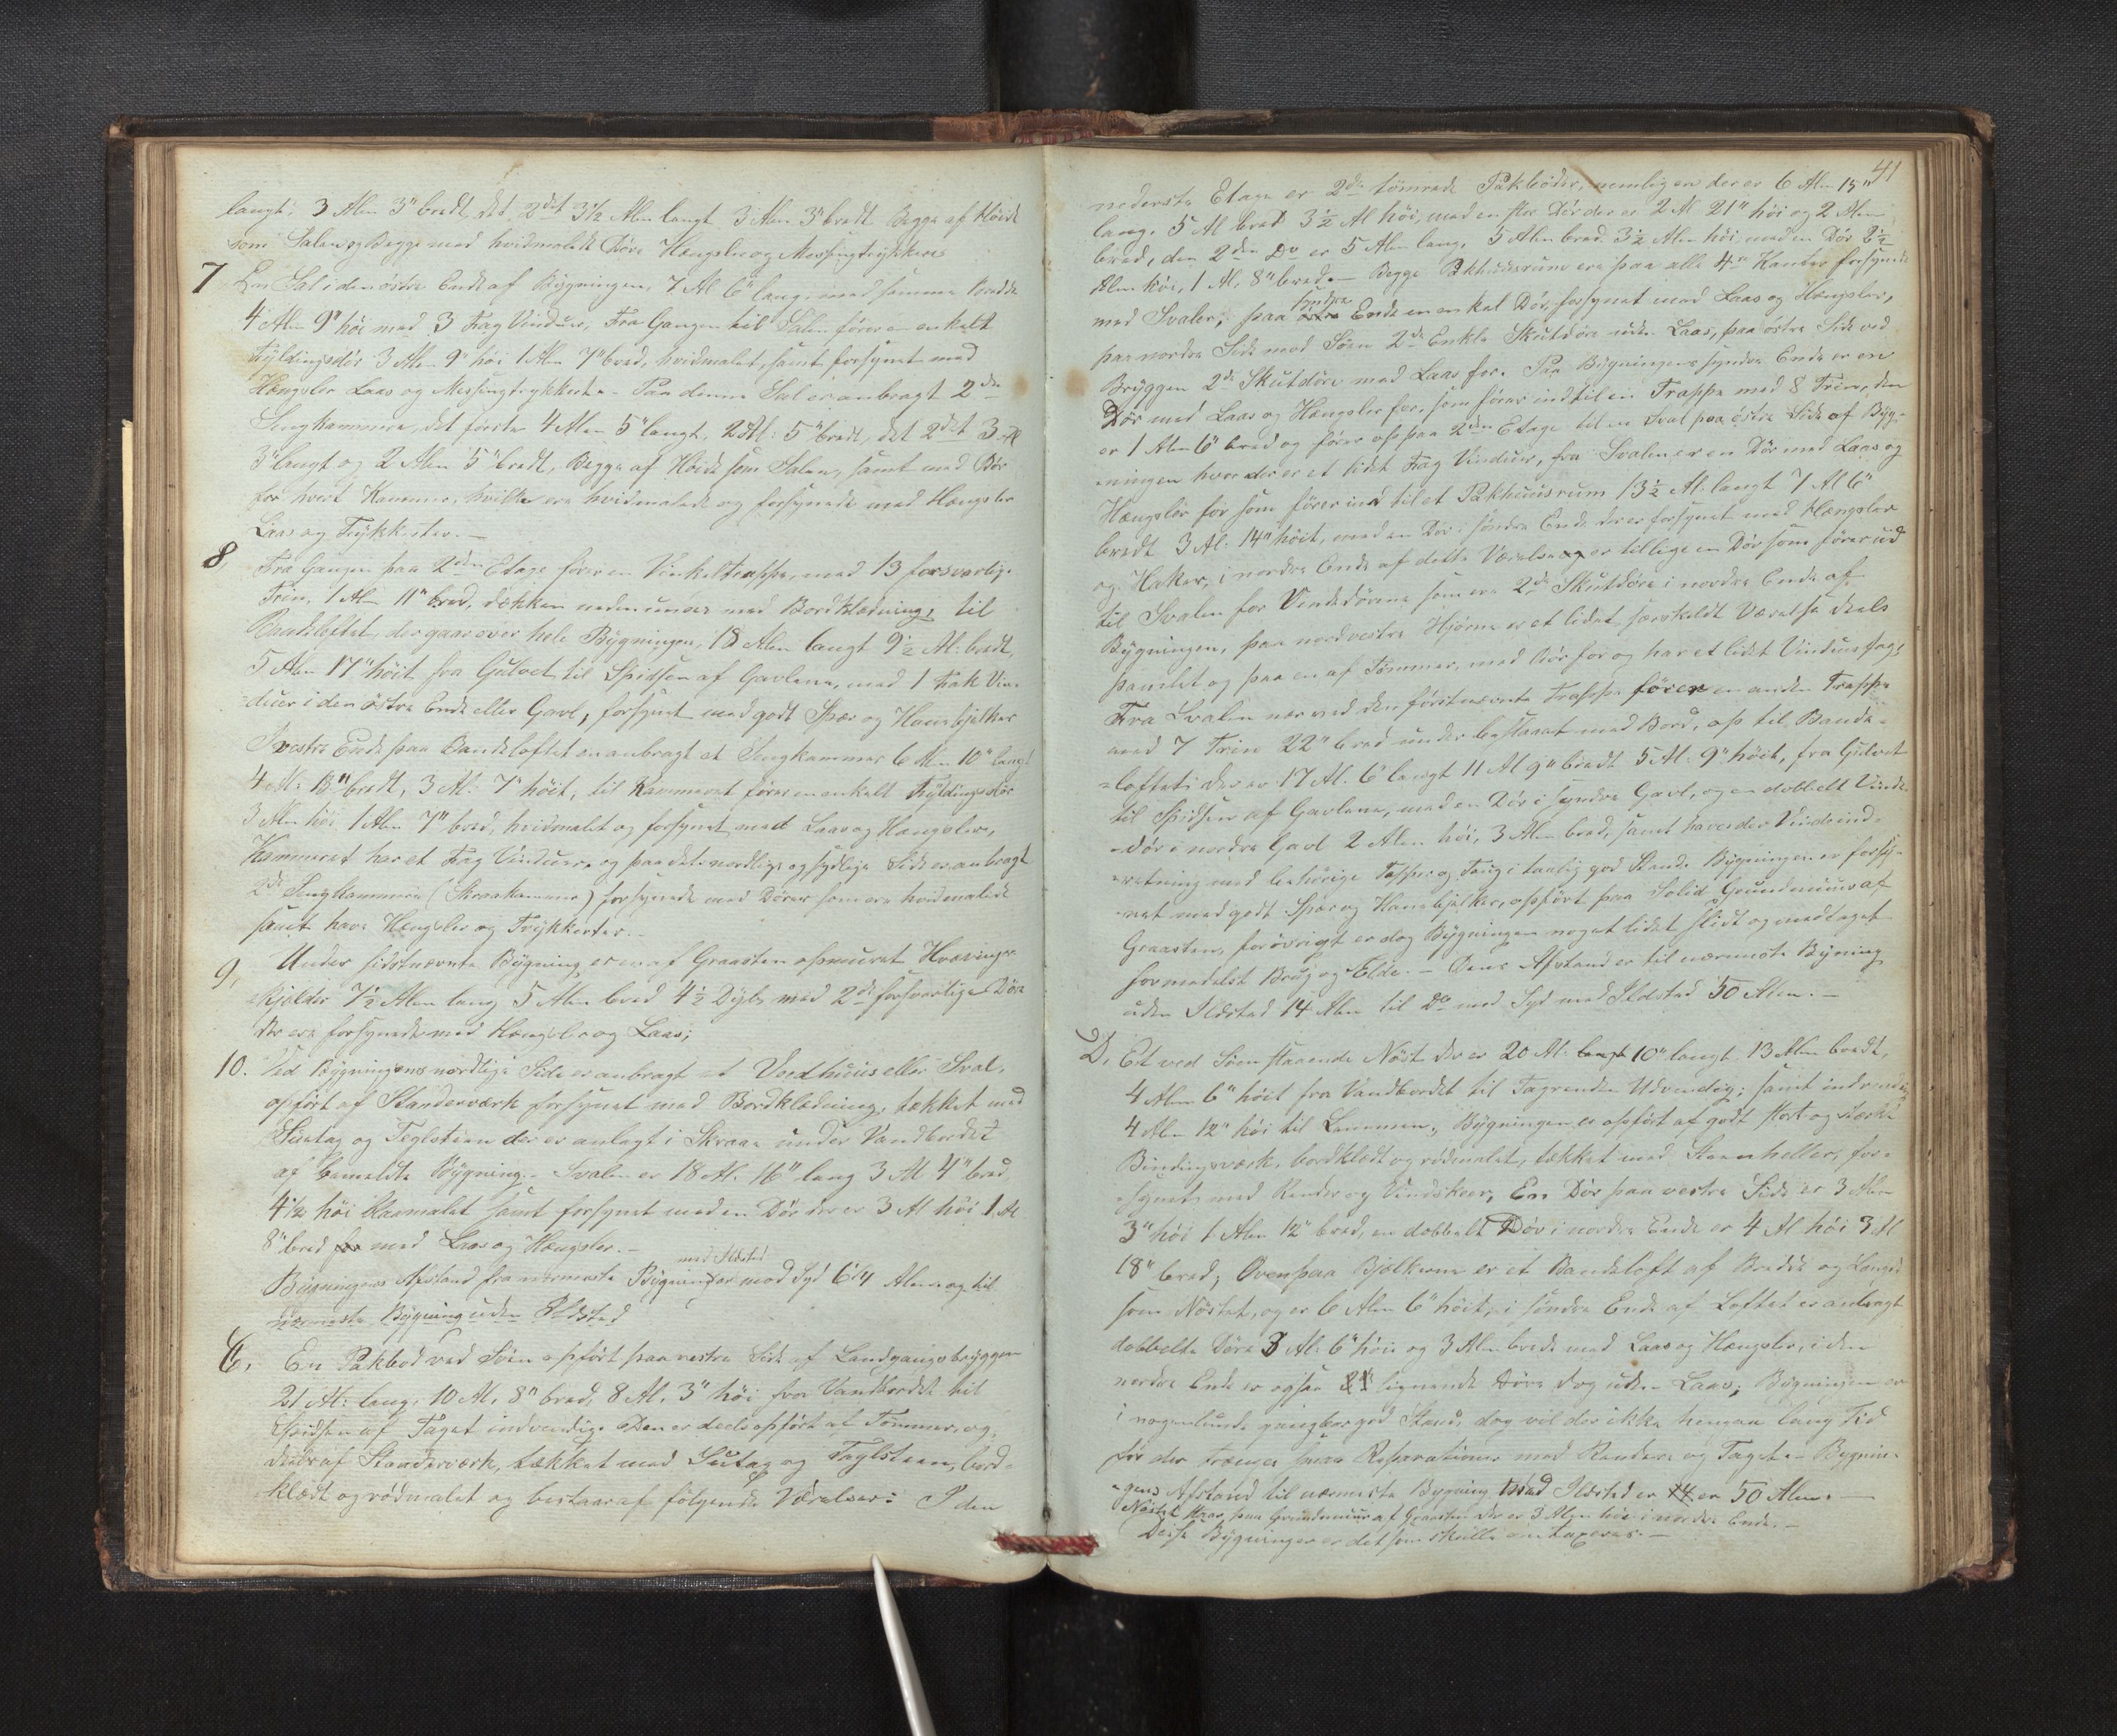 langt, 3 Alen 3" bredt, det 2det 3½ Alen langt 3 Alen 3" bredt Begge af Höide
som Salen og Begge med hvidmalede Döre Hængsler og Messingtrykkere
7 En Sal i den östre Ende af Bÿgningen, 7 Al 6" lang, med samme Bredde
4 Alen 9" höi med 3 Fag Vinduer, Fra Gangen til Salen fører en enkelt
Fÿldingsdör 3 Alen 9" höi 1 Alen 7" bred, hvidmalet, samt forsynet med
Hængsler Laas og Messingtrykkert. – Paa denne Sal er anbragt 2de
Sengkammere, det første 4 Alen 5" langt, 2 Al: 5" bredt, det 2det 3 Al
3" langt og 2 Alen 5" bredt, Begge af Höide som Salen, samt med Dör
for hvert Kammer, hvilke ere hvidmalede og forsynede med Hængsler
Laas og Trÿkkerter. –
8, Fra Gangen paa 2den Etage fører en Vinkeltrappe, med 13 forsvarlige
Trin, 1 Alen 11" bred, dækken nedenunder med Bordklædning, til
Bandeloftet, der gaar over hele Bÿgningen, 18 Alen langt 9½ Al: bredt,
5 Alen 17" höit fra Gulvet til Spidsen af Gavlene, med 1 Fak Vin-
duer i den östre Ende eller Gavl, forsynet med godt Spær og Hanebjelker
I vestre Ende paa Bandeloftet er anbragt et Sengkammer 6 Alen 10" langt
4 Al: 8" bredt, 3 Al: 7" höit, til Kammeret fører en enkelt Fÿldingsdör
3 Alen höi 1 Alen 7" bred, hvidmalet og forsynet med Laas og Hængsler,
Kammeret har et Fag Vinduer, og paa dets nordlige og sydlige Side er anbragt
2de Sengkammere (Skraakamre) forsynede med Dörer som ere hvidmalede
samt have Hængsler og Trykkerter. –
9, Under sidstnævnte Bÿgning er en af Graasten opmuret Hvælvings
Kjelder 7½ Alen lang 5 Alen bred 4½ Dÿb, med 2de forsvarlige Döre
der ere forsynede med Hængsler og Laas;
10. Ved Bÿgningens nordlige Side er anbragt et Vedhuus eller Sval,
opfört af Standerværk forsynet med Bordklædning, tækket med
Sutag og Teglsteen der er anlagt i Skraae under Vandbordet
af bemeldte Bÿgning. – Svalen er 18 Al. 16" lang 3 Al 4" bred,
4½ höi Umalet samt forsynet med en Dör der er 3 Al höi 1 Al
8" bred for med Laas og Hængsler. –
med Ildsted
Bÿgningens Afstand fra nærmeste Bÿgninger mod Syd 6¼ Alen og til
nærmeste Bÿgning uden Ildsted
C, En Pakbod ved Söen opfört paa vestre Side af Landgangsbryggen
21 Al: lang, 10 Al, 8" bred, 8 Al, 3" höi fra Vandbordet til
Spidsen af Taget indvendig. Den er deels opfört af Tømmer, og
deels af Standerværk, tækket med Sutag og Teglsteen, bord-
klædt og rödmalet og bestaar af fölgende Værelser: I den
41
nederste Etage er 2de tömrede Pakboder, nemlig en der er 6 Alen 15"
lang, 5 Al bred 3½ Al höi, med en stor Dör der er 2 Al 21" höi og 2 Alen
bred, den 2den Do er 5 Alen lang, 5 Alen bred 3½ Alen höi med en Dör 2½
Alen höi, 1 Al, 8" bred. – Begge Pakhuusrum ere paa alle 4re Kanter forsynede
søndre
med Svaler, paa östre Ende en enkel Dör, forsynet med Laas og Hængsler,
paa nordre Side mod Söen 2de Enkle Skutdöre uden Laas, paa östre Side ved
Brÿggen 2de Skutdöre med Laas for. Paa Bÿgningens syndre Ende er en
Dör med Laas og Hængsler for, som fører ind til en Trappe med 8 Trin, den
er 1 Alen 6" bred og fører op paa 2den Etage til en Sval paa östre Side af Bÿg-
ningen hvor der er et lidet Fag Vinduer, fra Svalen er en Dör med Laas og
Hængsler for som fører ind til et Pakhuusrum 13½ Al. langt 7 Al 6"
bredt 3 Al: 14" höit, med en Dör i søndre Ende der er forsynet med Hængsler
og Haker, i nordre Ende af dette Værelse og er tillige en Dör som fører ud
til Svalen for Vindedörene som ere 2de Skutdöre i nordre Ende af
Bÿgningen, paa nordvestre Hjörne er et lidet særskildt Værelse deels
panelet og paa en af Tömmer, med Dör for og har et lidet Vinduesfag;
Fra Svalen nær ved den förstnævnte Trappe fører en anden Trappe
med 7 Trin 22" bred under beslaaet med Bord, op til Bande-
loftet, der er 17 Al. 6" langt 11 Al 9" bredt 5 Al: 9" höit, fra Gulvet
til Spidsen af Gavlene, med en Dör i syndre Gavl, og en dobbelt Vinde-
dör i nordre Gavl 2 Alen höi, 3 Alen bred, samt haves der Vindeind-
retning med behörige Tapper og Toug i taalig god Stand. Bÿgningen er forsÿ-
net med godt Spær og Hanebjelker, opfört paa Solid Grundmuur af
Graasten, forövrigt er dog Bÿgningen noget lidet slidt og medtaget
formedelst Brug og Elde. – Dens Afstand er til nærmeste Bÿgning
uden Ildsted 14 Alen til Do mod Syd med Ildsted 50 Alen. –
D, Et ved Söen staaende Nöst der er 20 Al: langt 10" langt, 13 Alen bredt,
4 Alen 6" höit fra Vandbordet til Tagrenden Udvendig; samt indvendig
4 Alen 12" höi til Lemmen; Bÿgningen er opfört af godt stort og stærkt
Bindingsværk, bordklædt og rödmalet, tækket med Steenheller, for-
synet med Render og Vindskeer, En Dör paa vestre Side er 3 Alen
3" höi 1 Alen 12" bred, en dobbelt Dör i nordre Ende er 4 Al höi 3 Al
18" bred, Ovenpaa Bjelkerne er et Bandeloft af Bredde og Længde
som Nöstet, og er 6 Alen 6" höit, i søndre Ende af Loftet er anbragt
dobbelte Döre 3 Al: 6" höie og 3 Alen brede med Laas og Hængsler, i den
nordre Ende er ogsaa lignende Döre dog uden Laas; Bÿgningen er
i nogenlunde gangbar god Stand, dog vil der ikke hengaa lang Tid
för der trænges smaa Reparationer med Rendere og Taget. – Bÿgnin-
gens Afstand til nærmeste Bygning med Ildsted er 14 er 50 Alen. –
Nöstet staar paa Grundmuur af Graasten der er 3 Alen höi i nordre Ende. –
Disse Bÿgninger er det som skulle omtaxeres. –